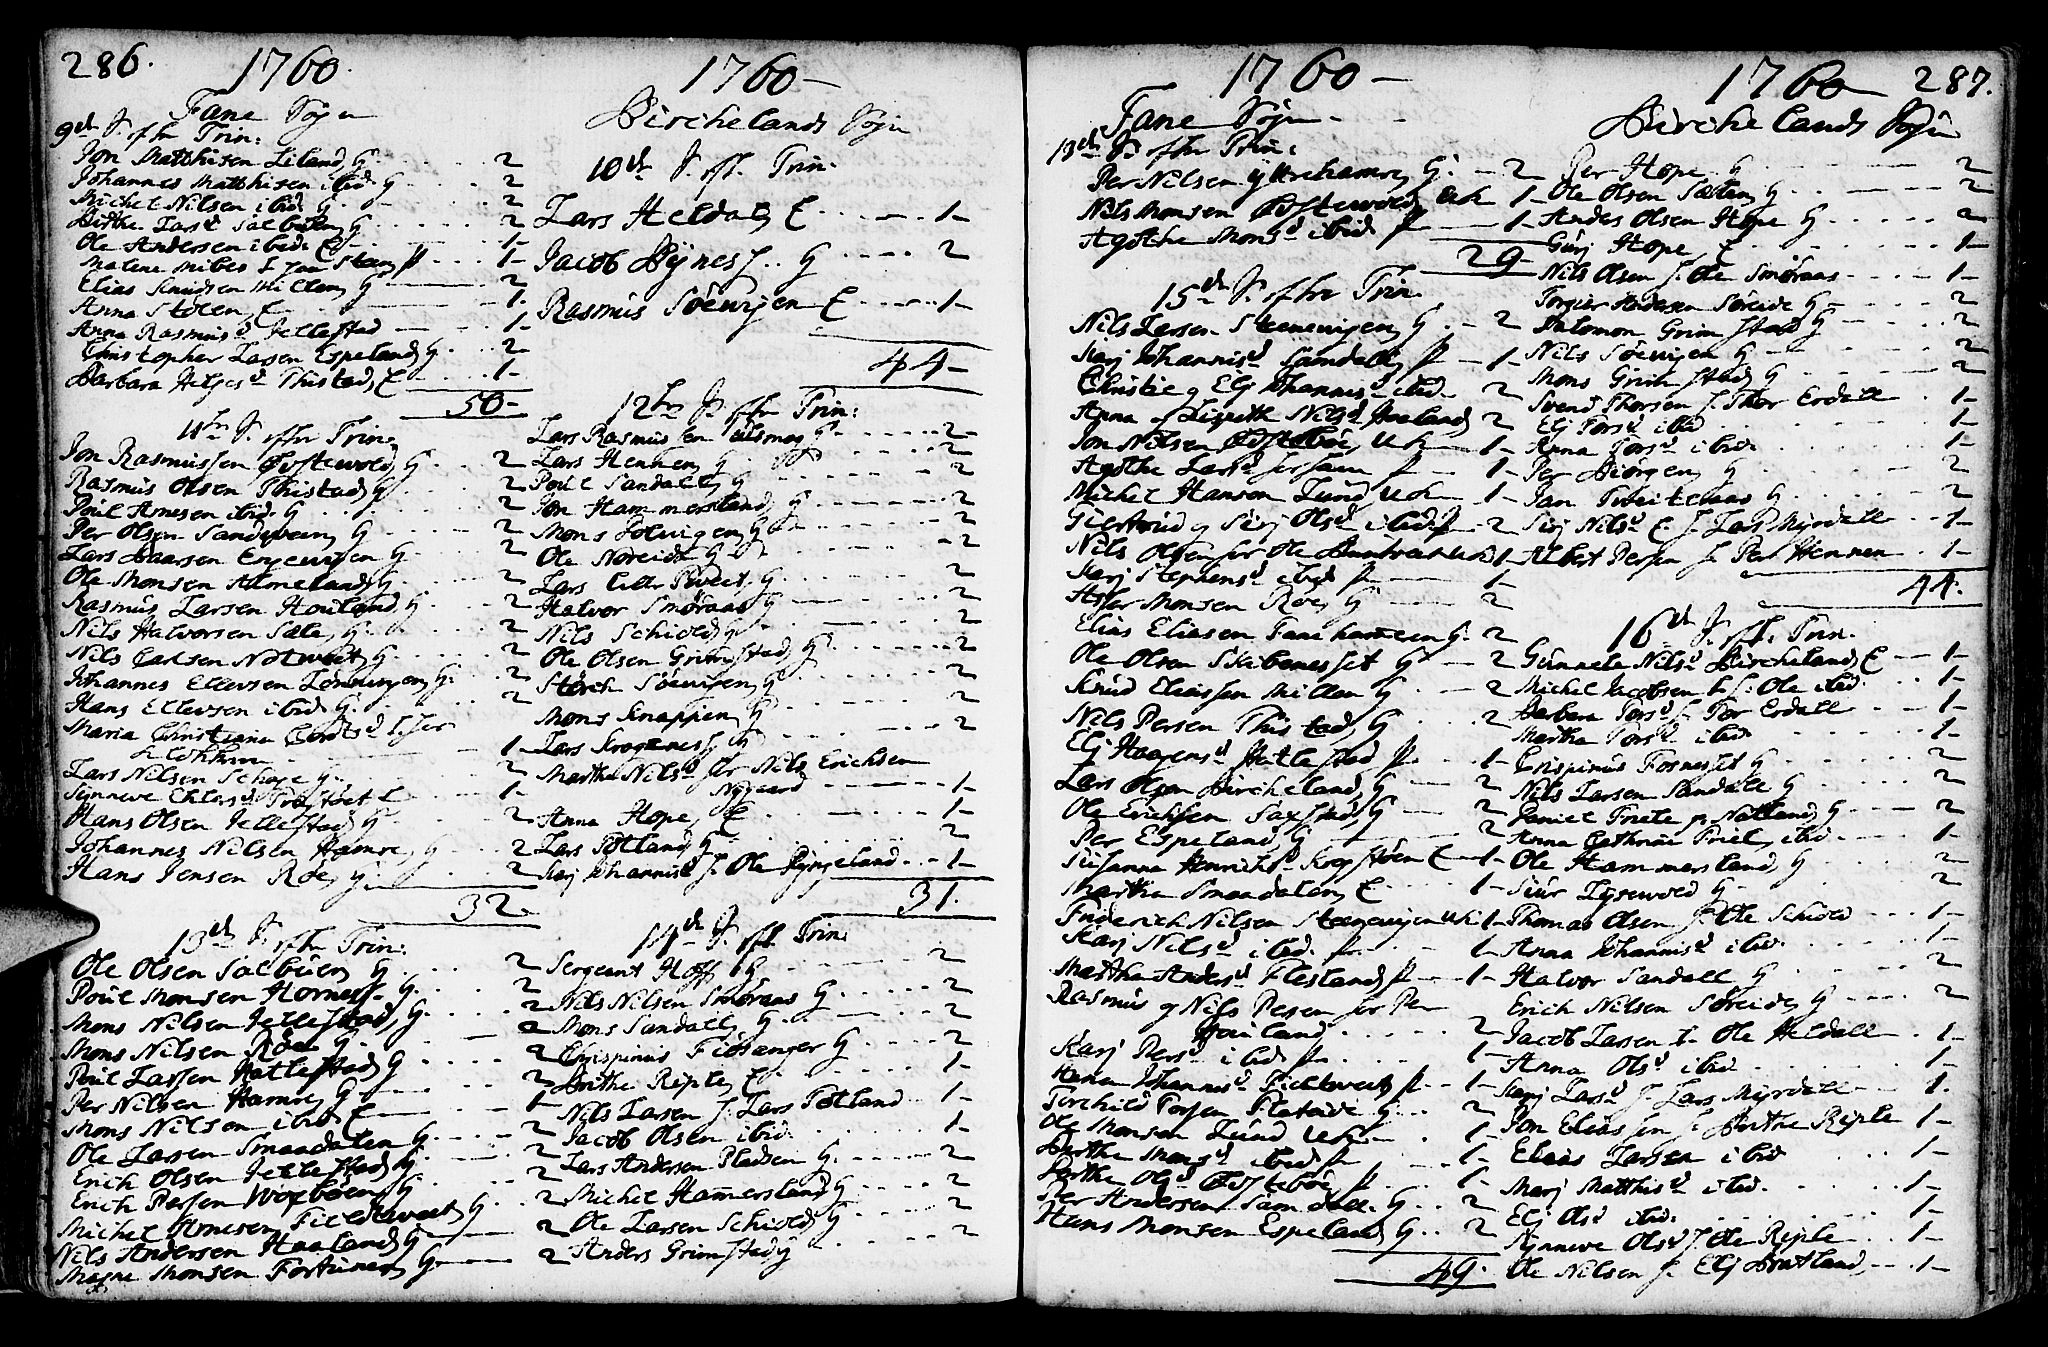 286.
1760.
Fane Sogn
9de S. efter Trin:
Jon Matthisen Liland, G. 2
Johannes Matthisen ibid. G 2
Michel Nilsen ibid. G. 2
Birthe Larsd Sælbuen, G 2
Ole Andersen ibid. E 1-
Malene Mibes S. Jan Steen P 1-
Elias Knudsen Millen, G 2
Anna Stølen, E 1.
Anna Rasmusd Jellestad 1-
Christopher Larsen Espeland, G. 2
Barbara Helgesd Thistad, E 1-
50-
11te S. efter Trin.
Jon Rasmussen Øvstevold, G. 2
Rasmus Olsen Thistad, G. 2
Poul Arnesen ibid. G 2
Per Olsen Sandveen, G 2
Lars Baarsen Engevigen G. 2
Ole Monsen Almeland, G. 2
Rasmus Larsen Houland, G 2
Nils Halvorsen Sæle, G. 2
Nils Carlsen Natweit, G. 2
Johannes Ellevsen Lønningen, G. 2
Hans Ellevsen ibid. G. 2
Maria Christiana Cordtsd
1-
Lars Nilsen Schage G. 2
Synneve Ehlersd E 1-
Hans Olsen Jellestad G. 2
Johannes Nilsen Hamre, G 2
Hans Jensen Røe, G. 2
32.
13de S. efter Trin:
Ole Olsen Sælbuen, G. 2
Poul Monsen Hornes. G. 2
Mons Nilsen Jellestad, G. 2
Mons Nilsen Røe G. 2
Poul Larsen Hatlestad G 2
Per Nilsen Hamre, G 2
Mons Nilsen ibid. E 1-
Ole Larsen Smaadalen G. 2
Erich Olsen Jellestad, G. 2
Erich Persen G. 2
Michel Arnesen Fieldtweet, G. 2
Nils Andersen Haaland, G 2
Magne Monsen Fortunen, G 2
1760-
Birchelands Sogn
10de S. eft. Trin.
Lars Heldal, E 1-
Jacob Bynes G 2
Rasmus Søevigen E 1-
44-
12te S. efter Trin:
Lars Rasmussen G. 2
Lars Hennen, G 2
Poul Sandall, G 2
Jon Hammersland, G 2
Mons Solvigen, G 2
Ole Noreide G 2
Lars Tweit, G. 2
Halvor Smøraas G 2
Nils Schiold, G 2
Ole Olsen Grimstad, G 2
Størch Søevigen, G 2
Mons Knappen, G 2
Lars Krogenes, G 2
Marthe Nilsd for Nils Erichsen
Nygaard 1-
Anna Hope, E 1-
Lars Totland, G 2
Karj Johannisd f. Ole Ryngeland 1-
31.
14de S. eft. Trin:
Sergeant Hoff G 2
Nils Nilsen Smøraas G. 2
Mons Sandall, G. 2
Chrispinus Fidsanger G. 2
Birthe Riple, E. 1-
Nils Larsen f. Lars Totland 1-
Jacob Olsen ibid. 1-
Lars Andersen Pladsen G. 2
Michel Hammersland, G 2
Ole Larsen Schiold, G 2
Anders Grimstad, G 2
1760-
287.
Fane Sogn
13de S. efter Trin:
Per Nilsen Yttrehamre, G. 2
Nils Monsen Øvstevold, uk 1-
Agothe Monsd ibid P 1-
29-
15de S. efter Trin.
Nils Larsen Steenevigen, G. 2
Karj Johannisd Sandall, P 1-
Christie og Elj Johannisd ibid. 2
Anna og Lisbeth Nilsd Houland, 2
Jon Nilsen Øvstebøe, uk 1-
Agothe Larsd P 1-
Michel Hansen Lund uk 1-
Giertrud og Sirj Olsd ibid. P. 2
Nils Olsen for Ole uk 1-
Karj Stephensd ibid P 1-
Asser Monsen Røe, G 2
Elias Eliasen Fanehammeren G. 2
Ole Olsen Skibenesset G 2
Knud Eliassen Millen G. 2
Nils Persen Thistad, G 2
Elj Haagensd Hatlestad P. 1-
Lars Olsen Bircheland, G 2
Ole Erichsen Saxstad, G 2
Per Espeland, G 2
Susanna Henrichsd E 1-
Martha Smaadalen, E 1-
Friderich Nilsen Steenevigen uk 1-
Karj Nilsd ibid. P. 1-
Martha Andersd Flesland, P 1-
Rasmus og Nils Persen for Per
Houland 2
Karj Persd ibid P. 1-
Hans Johannisd Fieldtweet, P 1-
Torchild Torsen Flatøe G. 2
Ole Monsen Lund uk 1-
Birthe Monsd ibid P 1-
Birthe Olsd Øvstebøe P. 1-
Per Andersen Samdal. G. 2
Hans Monsen Espeland, G. 2
49.
1760
Birchelands Sogn
Per Hope, G 2
Ole Olsen Sælen, G 2
Andes Olsen Hope G 2
Gurj Hope, E 1-
Nils Olsen f. Ole Smøraas 1-
Torgier Andersen Søreide G 2
Salomon Grimstad, G 2
Nils Søevigen G 2
Mons Grimstad, G 2
Svend Thorsen f. Thor Erdall 1-
Elj Torsd ibid 1-
Anna Torsd ibid 1-
Per Biørgen, G 2
Jan Tveiteraas G 2
Sirj Nilsd E f. Lars Myrdall 1-
Albert Persen f. Per Hennen 1-
44.
16de S. eft. Trin.
Gunnela Nilsd Bircheland, E 1-
Michel Jacobsen E f. Ole ibid. 1-
Barbara Torsd f. Tor Erdall 1-
Martha Torsd ibid. 1-
Crispinus Fosnesset G 2
Nils Larsen Sandall, G 2
Daniel Friele p. Natland, G 2
Anna Cathrine Friel, ibid. 1-
Ole Hammersland, G 2
Siur Lysewold G 2
Thomas Olsen f. Ole Schiold 1-
Anna Johannisd ibid. 1-
Halvor Sandall G 2
Erich Nilsen Søreide, G 2
Jacob Larsen f. Ole Heldall 1-
Anna Olsd ibid. 1-
Karj Larsd f. Lars Myrdall 1.
Jon Eliassen f. Birthe Riple 1-
Elias Larsen ibid 1-
Marj Matthisd ibid. 1-
Elj Olsd ibid. 1-
Synneve Olsd f. Ole Riple 1-
Ole Nilsen f. Elj Bratland, 1-